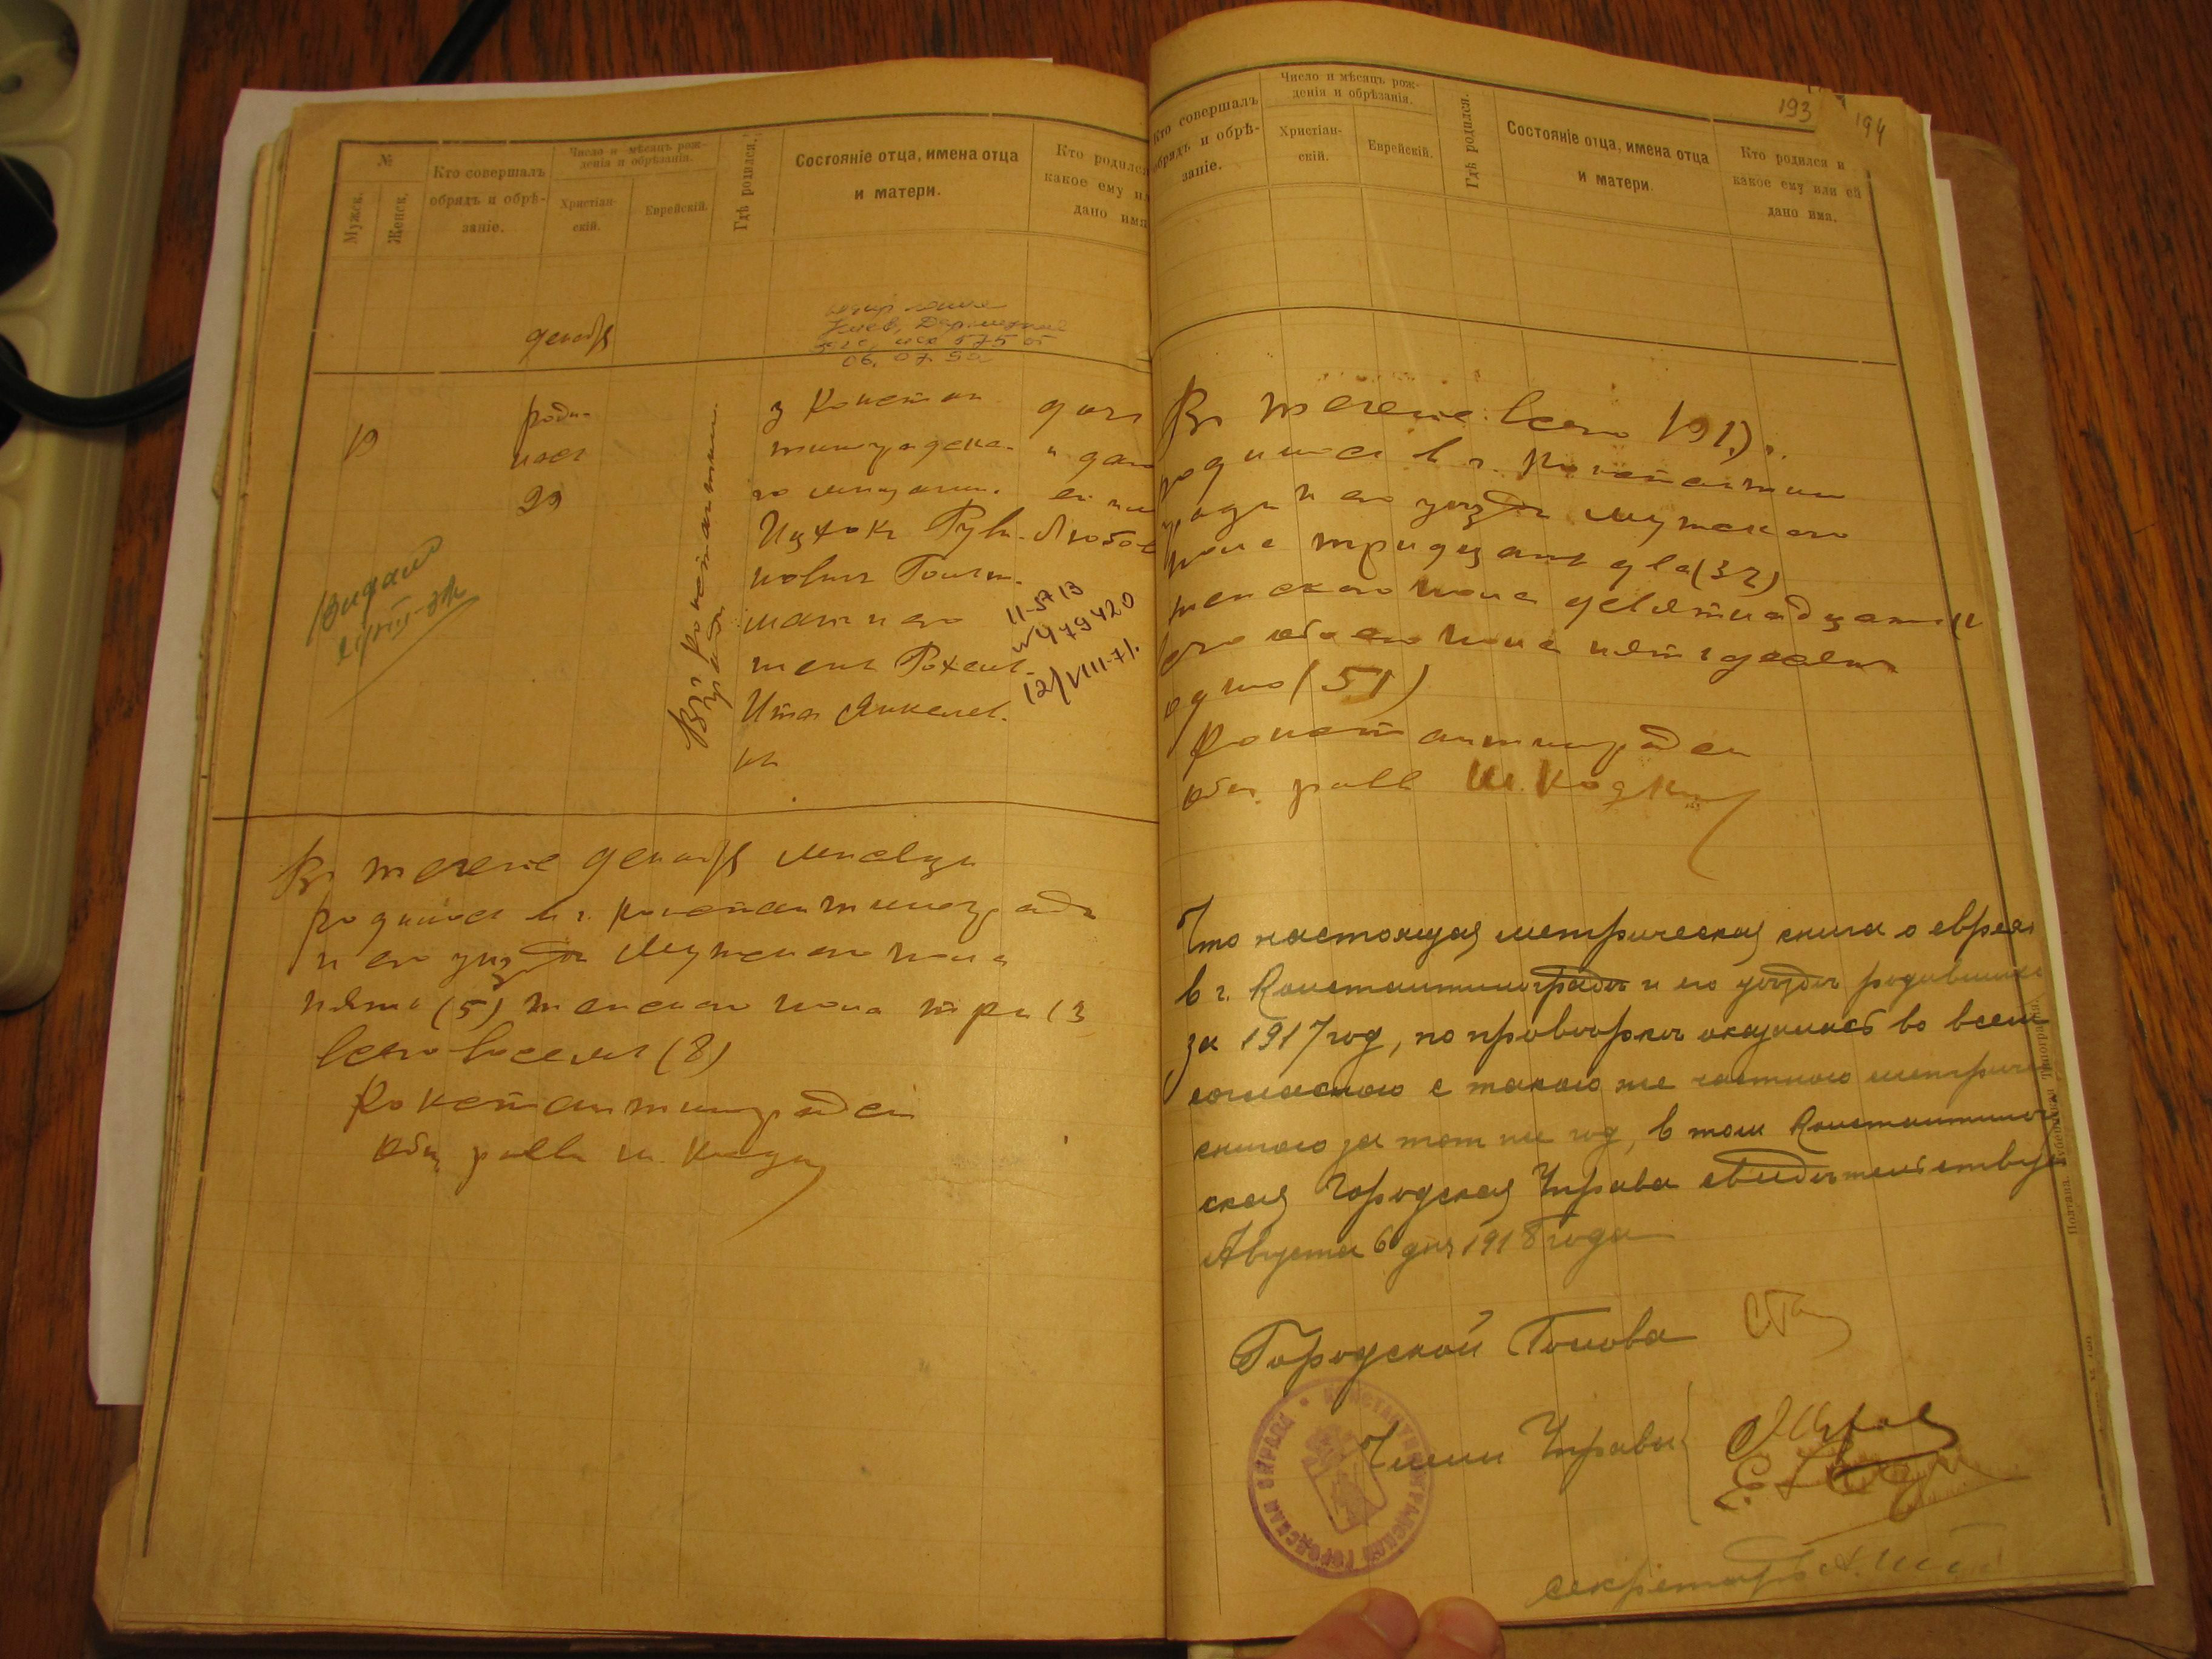 №
Мужск.
Женск.
Кто совершалъ
обрядъ и обрѣ-
заніе.
Число и мѣсяцъ рож-
денія и обрѣзанія.
Христіан-
скій.
Еврейскій.
Гдѣ родился.
Состояніе отца, имена отца
и матери.
Кто родился
какое ему ил
дано имя
декабр
06. 07. 90
19
роди-
лась
29
Видано
В г. Константин
граде
з Констан
тиноградска-
го мещанин.
Ицхокъ Руви-
нович Гольт-
ман и его
жена Рохель-
Ита Янкелев-
на
дочь
и дано
ей имя
Любов
11-5713
№479420
12/VIII-71.
В течение декабр месяца
родилось в г. Константинограде
и его уезде мужеского пола
пять (5) женского пола три (3
всего восемь (8)
Константиноградски
общ равв
193
194
Кто совершалъ
обрядъ и обрѣ-
заніе.
Число и мѣсяцъ рож-
денія и обрѣзанія.
Христіан-
скій.
Еврейскій.
Гдѣ родился.
Состояніе отца, имена отца
и матери.
Кто родился и
какое ему или ей
дано имя.
В течение всего 1917 г.
родилось в г. Константин
граде и его уезде мужеского
пола тридцать два (32)
женского пола девятнадцать
обоего пола пятьдесят
одно (51)
Константиноградски
общ равв
Что настоящая метрическая книга о евреях
в г. Константинограде и его уезде родившихся
за 1917 год, по проверке оказалась во всем
согласною с такою же частною метриче
книгою за тот же год, в том Константиног
ская Городская Управа свидетельствует
Августа 6 дня 1918 года
Городской Голова
Члены Управы
секретарь
КОНСТАНТИНОГРАДСКАЯ ГОРОДСКАЯ УПРАВА
Полтава. Губернская Типографія.